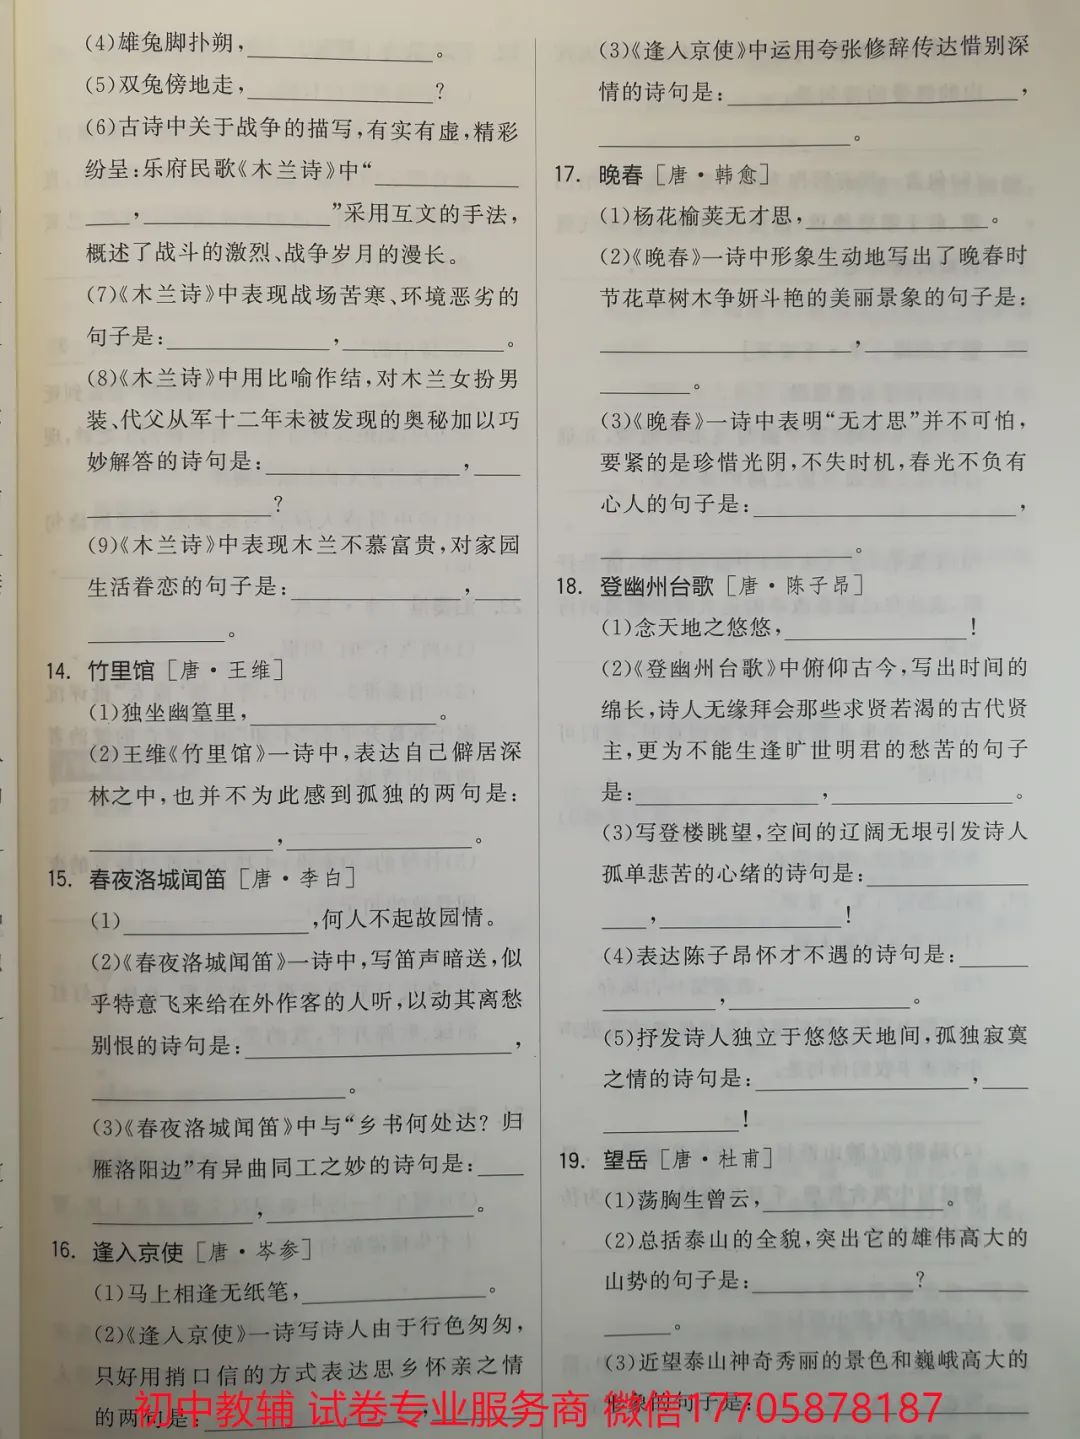 (4)雄兔脚扑朔,____。
(5)双兔傍地走,____?
(6)古诗中关于战争的描写,有实有虚,精彩
纷呈:乐府民歌《木兰诗》中“____
____,____”采用互文的手法,
概述了战斗的激烈、战争岁月的漫长。
(7)《木兰诗》中表现战场苦寒、环境恶劣的
句子是:____,____。
(8)《木兰诗》中用比喻作结,对木兰女扮男
装、代父从军十二年未被发现的奥秘加以巧
妙解答的诗句是:____,____
____?
(9)《木兰诗》中表现木兰不慕富贵,对家园
生活眷恋的句子是:____,____
____。
14. 竹里馆[唐·王维]
(1)独坐幽篁里,____。
(2)王维《竹里馆》一诗中,表达自己僻居深
林之中,也并不为此感到孤独的两句是:
____,____。
15. 春夜洛城闻笛[唐·李白]
(1)____,何人不起故园情。
(2)《春夜洛城闻笛》一诗中,写笛声暗送,似
乎特意飞来给在外作客的人听,以动其离愁
别恨的诗句是:____,
____。
(3)《春夜洛城闻笛》中与“乡书何处达?归
雁洛阳边”有异曲同工之妙的诗句是:____
____,____。
16. 逢入京使[唐·岑参]
(1)马上相逢无纸笔,____。
(2)《逢入京使》一诗写诗人由于行色匆匆,
只好用捎口信的方式表达思乡怀亲之情
的两句是:____,____
(3)《逢入京使》中运用夸张修辞传达惜别深
情的诗句是:____,
____。
17. 晚春[唐·韩愈]
(1)杨花榆荚无才思,____。
(2)《晚春》一诗中形象生动地写出了晚春时
节花草树木争妍斗艳的美丽景象的句子是:
____,____
____。
(3)《晚春》一诗中表明“无才思”并不可怕,
要紧的是珍惜光阴,不失时机,春光不负有
心人的句子是:____,
____。
18. 登幽州台歌[唐·陈子昂]
(1)念天地之悠悠,____!
(2)《登幽州台歌》中俯仰古今,写出时间的
绵长,诗人无缘拜会那些求贤若渴的古代贤
主,更为不能生逢旷世明君的愁苦的句子
是:____,____。
(3)写登楼眺望,空间的辽阔无垠引发诗人
孤单悲苦的心绪的诗句是:____
____,____!
(4)表达陈子昂怀才不遇的诗句是:____
____,____。
(5)抒发诗人独立于悠悠天地间,孤独寂寞
之情的诗句是:____,____
____!
19. 望岳[唐·杜甫]
(1)荡胸生曾云,____。
(2)总括泰山的全貌,突出它的雄伟高大的
山势的句子是:____?____
____。
(3)近望泰山神奇秀丽的景色和巍峨高大的
形象的句子是:____
初中教辅 试卷专业服务商 微信17705878187